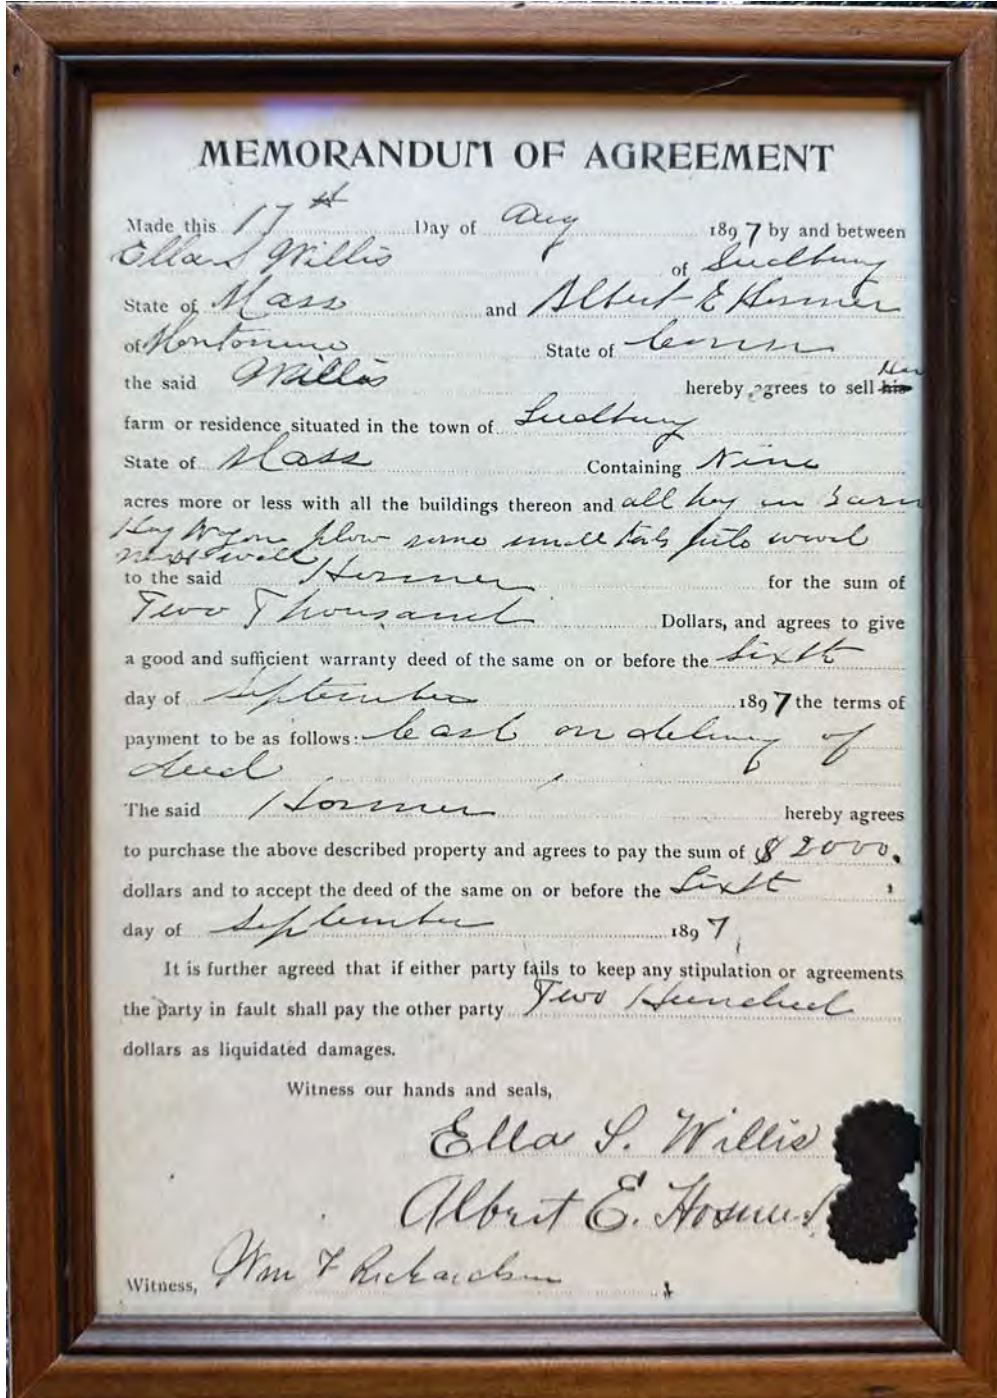 MEMORANDUM OF AGREEMENT
Made this 17th Day of Aug 1897 by and between
Ella S Willis of Sudbury
State of Mass and Albert E Hosmer
of State of Conn
Her
the said Willis hereby agrees to sell his
farm or residence situated in the town of Sudbury
State of Mass Containing Nine
acres more or less with all the buildings thereon and all hay in barn
Hay Wagon plow some small tools
to the said Hosmer for the sum of
Two Thousand Dollars, and agrees to give
a good and sufficient warranty deed of the same on or before the Sixth
day of September 1897 the terms of
payment to be as follows: Cash on delivery of
deed
The said Hosmer hereby agrees
to purchase the above described property and agrees to pay the sum of $2000.
dollars and to accept the deed of the same on or before the Sixth
day of September 1897
It is further agreed that if either party fails to keep any stipulation or agreements
the party in fault shall pay the other party Two Hundred
dollars as liquidated damages.
Witness our hands and seals,
Ella S. Willis
Albert E. Hosmer
Witness, Wm F Richardson